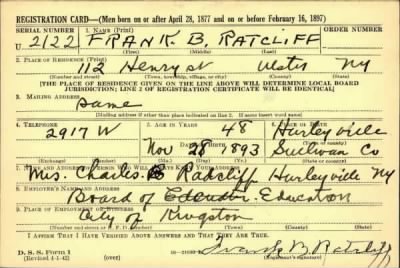 REGISTRATION CARD—(Men born on or after April 28, 1877 and on or before February 16, 1897)
SERIAL NUMBER 1. NAME (Print) ORDER NUMBER
U 2122 FRANK B. RATCLIFF
(First) (Middle) (Last)
2. PLACE OF RESIDENCE (Print)
112 Henry st Ulster NY
(Number and street) (Town, township, village, or city) (County) (State)
[THE PLACE OF RESIDENCE GIVEN ON THE LINE ABOVE WILL DETERMINE LOCAL BOARD
JURISDICTION; LINE 2 OF REGISTRATION CERTIFICATE WILL BE IDENTICAL]
3. MAILING ADDRESS
Same
[Mailing address if other than place indicated on line 2. If same insert word same]
4. TELEPHONE 5. AGE IN YEARS
2917 W 48 Hurleyville
Nov 28 1893 Sullivan Co
(Exchange) (Number) (Mo.) (Day) (Yr.) (State or country)
Mrs. Charles Ratcliff Hurleyville NY
8. EMPLOYER'S NAME AND ADDRESS
Board of Education
9. PLACE OF EMPLOYMENT OR BUSINESS
City of Kingston
(Number and street or R. F. D. number) (Town) (County) (State)
I AFFIRM THAT I HAVE VERIFIED ABOVE ANSWERS AND THAT THEY ARE TRUE.
D. S. S. Form 1
(Revised 4-1-42) (over) Frank B Ratcliff
(Registrant's signature)